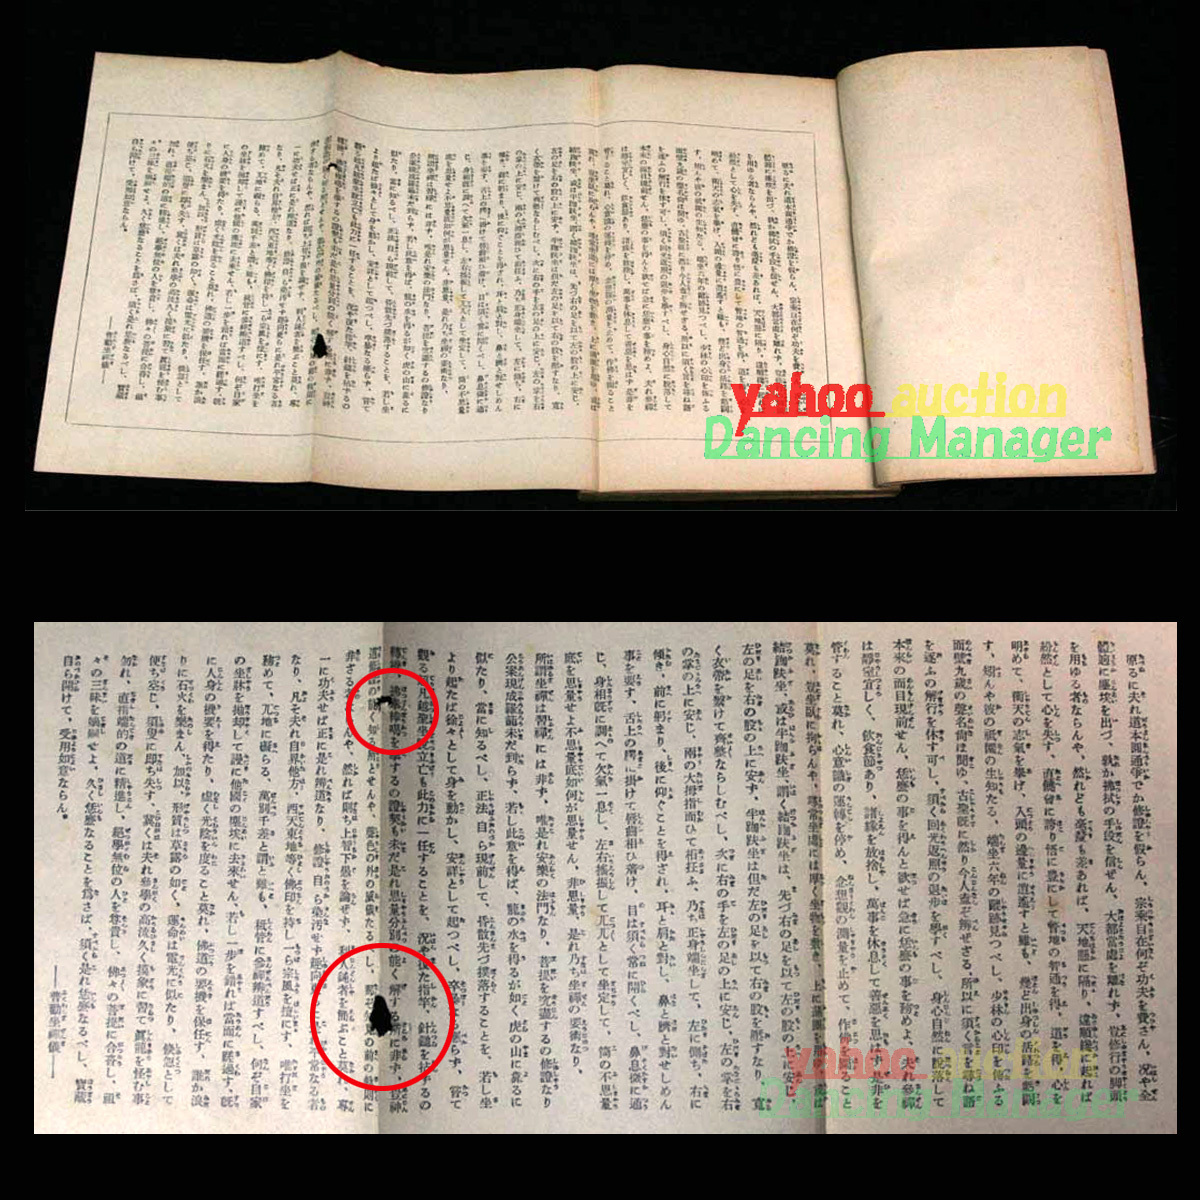 原るに夫れ道本圓通爭でか修證を假らん、宗乘自在何ぞ功夫を費さん、況や全
體逈に塵埃を出づ、孰か拂拭の手段を信ぜん、大都當處を離れず、豈修行の脚頭
を用ゆる者ならんや、然れども毫釐も差あれば、天地懸に隔り、違順纔に起れば
紛然として心を失す、直饒會に誇り悟に豐にして瞥地の智通を得、道を得、心を
明めて、衝天の志氣を擧げ、入頭の邊量に逍遙すと雖も、幾ど出身の活路を虧闕
す、矧んや彼の祇園の生知たる、端坐六年の蹤跡見つべし、少林の心印を傳ふる
面壁九歳の聲名尚ほ聞ゆ、古聖既に然り今人盍ぞ辨ぜざる、所以に須く言を尋ね語
を逐ふの解行を休す可し、須く回光返照の退歩を學すべし、身心自然に脱落して
本來の面目現前せん、恁麼の事を得んと欲せば急に恁麼の事を務めよ、夫れ參禪
は靜室宜しく、飲食節あり、諸縁を放捨し、萬事を休息して善惡を思はず是非を
管すること莫れ、心意識の運轉を停め、念想觀の測量を止めて、作佛を圖ること
莫れ、豈坐臥に拘らんや、尋常坐處には厚く坐物を敷き、上に蒲團を用ゆ、或は
結跏趺坐、或は半跏趺坐、謂く結跏趺坐は、先づ右の足を以て左の股の上に安じ、
左の足を右の股の上に安ず、半跏趺坐は但だ左の足を以て右の股を壓すなり、寛
く衣帶を繋けて齊整ならしむべし、次に右の手を左の足の上に安じ、左の掌を右
の掌の上に安じ、兩の大拇指面ひて相拄ふ、乃ち正身端坐して、左に側ち、右に
傾き、前に躬まり、後に仰ぐことを得ざれ、耳と肩と對し、鼻と臍と對せしめん
事を要す、舌上の腭に掛けて唇齒相ひ着け、目は須く常に開くべし、鼻息微に通
じ、身相既に調へて欠氣一息し、左右搖振して兀兀として坐定して、箇の不思量
底を思量せよ不思量底如何が思量せん、非思量、是れ乃ち坐禪の要術なり、
所謂坐禪は習禪には非ず、唯是れ安樂の法門なり、菩提を究盡するの修證なり
公案現成羅籠未だ到らず、若し此意を得ば、龍の水を得るが如く虎の山に靠るに
似たり、當に知るべし、正法自ら現前して、昏散先づ撲落することを、若し坐
より起たば徐々として身を動かし、安詳として起つべし、卒暴なる應らず、嘗て
觀る超凡越聖坐脱立亡も此力に一任することを、況や復た指竿、針鎚を拈ずるの
轉機、拂拳棒喝を擧するの證契も未だ是れ思量分別の能く解する所に非ず、豈神
通修證の能く知る所とせんや、聲色の外の威儀たるべし、那ぞ知見の前の軌則に
非ざる者ならんや、然れば則ち上智下愚を論ぜず、利人鈍者を簡ぶこと莫れ、專
一に功夫せば正に是れ辨道なり、修證自ら染汚せず趣向更に是れ平常なる者
なり、凡そ夫れ自界他方、西天東地等く佛印を持し一ら宗風を擅にす、唯打坐を
務めて、兀地に礙らる、萬別千差と謂と雖も、祇管に參禪辨道すべし、何ぞ自家
の坐牀を拋却して謾に他國の塵埃に去來せん、若し一歩を錯れば當面に蹉過す、既
に人身の機要を得たり、虚く光陰を度ること莫れ、佛道の要機を保任す、誰か浪
りに石火を樂まん、加以、形質は草露の如く、運命は電光に似たり、倏忽として
便ち空じ、須臾に即ち失す、冀くは夫れ參學の高流久く摸象に習て、眞龍を怪む事
勿れ、直指端的の道に精進し、絶學無位の人を尊貴し、佛々の菩提に合沓し、祖
々の三昧を嫡嗣せよ、久く恁麼なることを爲さば、須く是れ恁麼なるべし、寶藏
自ら開けて、受用如意ならん。
――普勸坐禪儀――
yahoo auction
Dancing Manager
yahoo auction
Dancing Manager